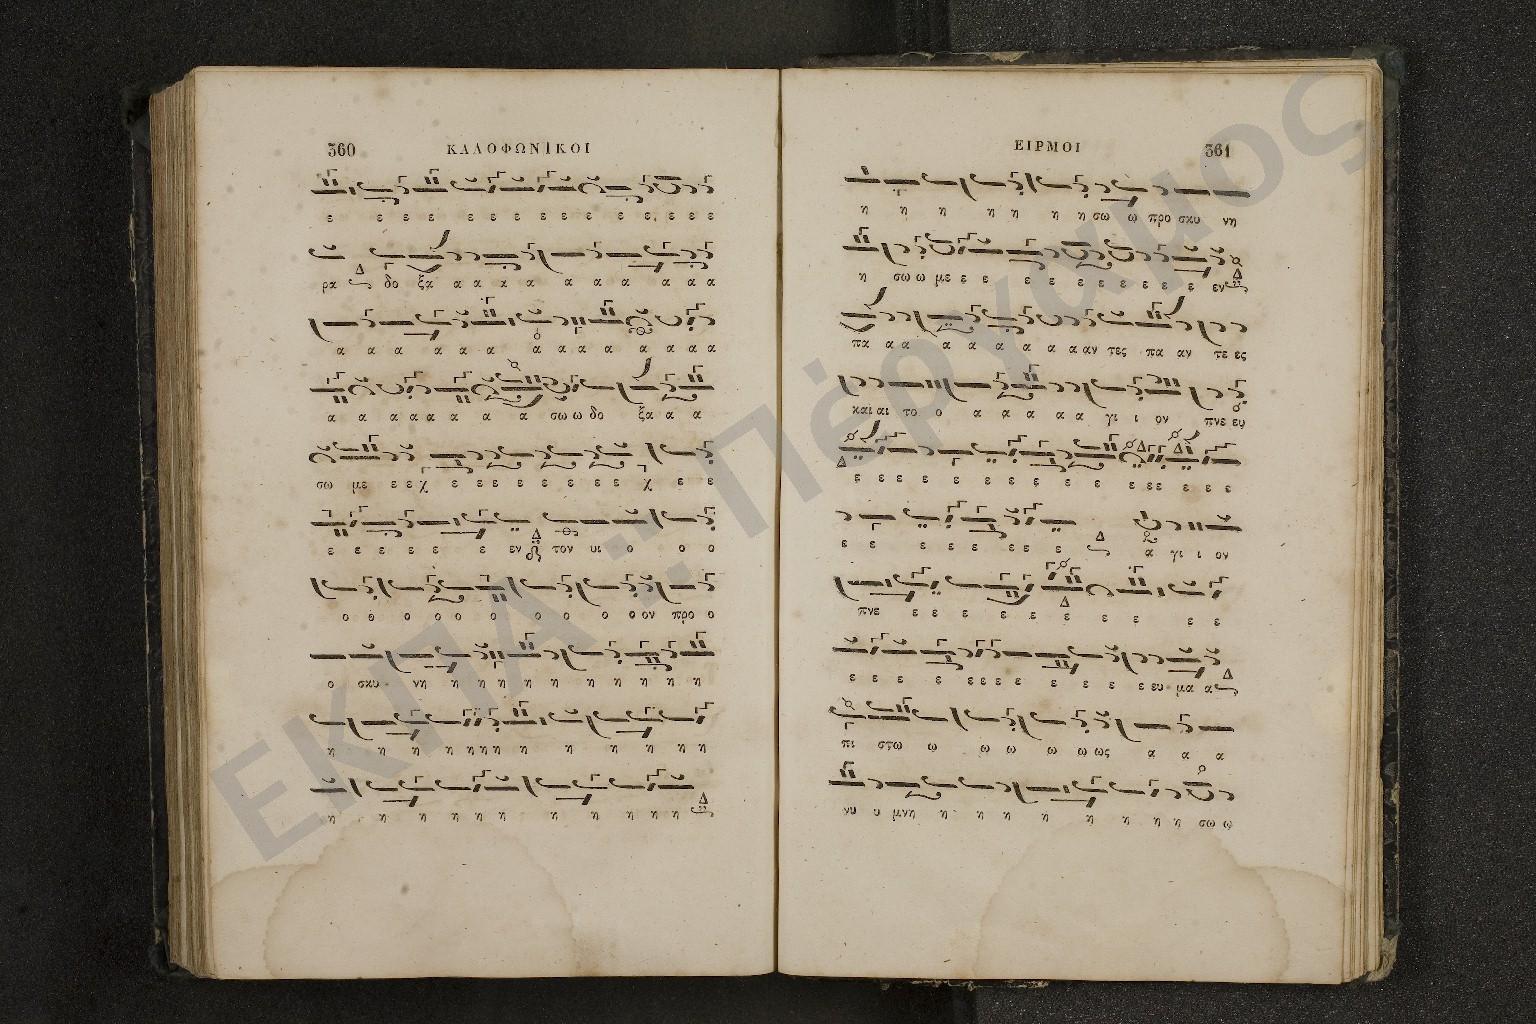 360 ΚΑΛΟΦΩΝΙΚΟΙ
ε ε ε ε ε ε ε ε ε ε ε ε ε ε ε
ρα δο ξα α α α α α α α α α α α
α α α α α α α α α α α α α α
α α α α α α α α σω ω δο ξα α α
σω με ε ε χ ε ε ε ε ε ε ε ε χ ε ε
ε ε ε ε ε ε εν τον υι ο ο ο
ο ο ο ο ο ο ο ο ο ον προ ο
ο σκυ νη η η η η η η η η η
η η η η η η η η η η η η η
η η η η η η η η η η η
ΕΙΡΜΟΙ 361
η η η η η η η σω ω προ σκυ νη
η σω ω με ε ε ε ε ε ε ε ε ε ε εν
πα α α α α α α α α αν τες πα αν τε ες
και αι το ο α α α α α γι ι ον πνε ευ
ε ε ε ε ε ε ε ε ε ε ε ε ε ε ε ε ε
ε ε ε ε ε ε ε ε α γι ι ον
πνε ε ε ε ε ε ε ε ε ε ε
ε ε ε ε ε ε ε ε ε ε ε ε ευ μα α
πι στω ω ω ω ω ω ως α α α
νυ υ μνη η η η η η η η η σω ω
ΕΚΠΑ :: Πέργαμος